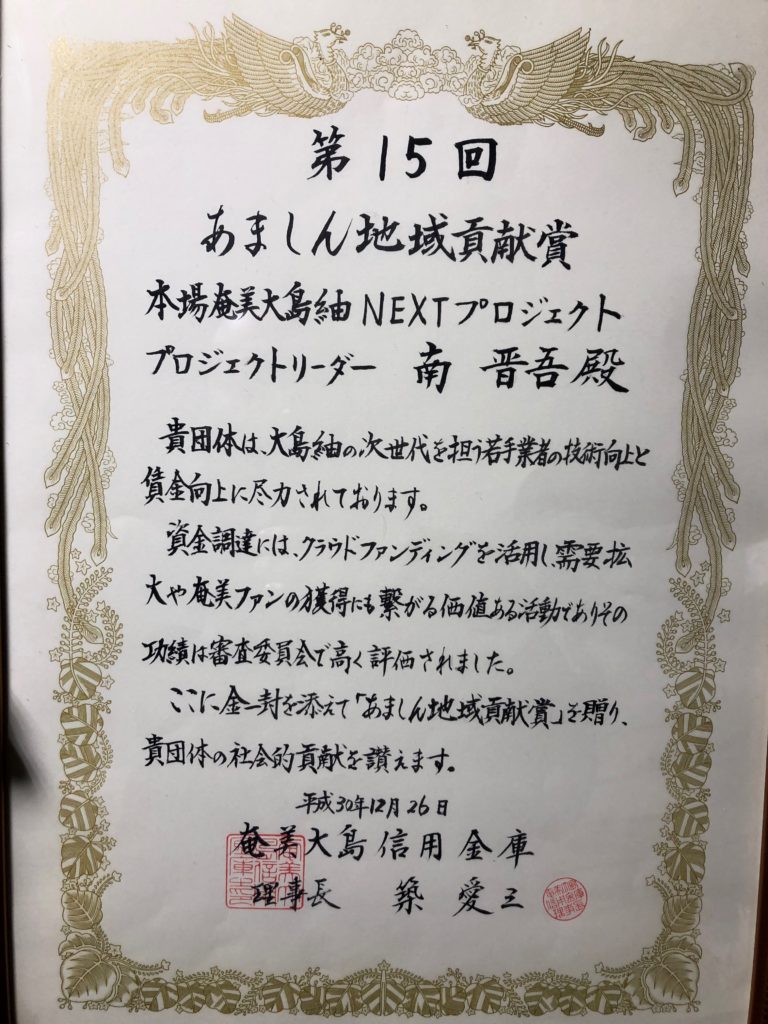 第15回
あましん地域貢献賞
本場奄美大島紬NEXTプロジェクト
プロジェクトリーダー 南 晋吾殿
貴団体は、大島紬の次世代を担う若手業者の技術向上と
賃金向上に尽力されております。
資金調達には、クラウドファンディングを活用し、需要拡
大や奄美ファンの獲得にも繋がる価値ある活動でありその
功績は審査委員会で高く評価されました。
ここに金一封を添えて「あましん地域貢献賞」を贈り、
貴団体の社会的貢献を讃えます。
平成30年12月26日
奄美大島信用金庫
理事長 築 愛三